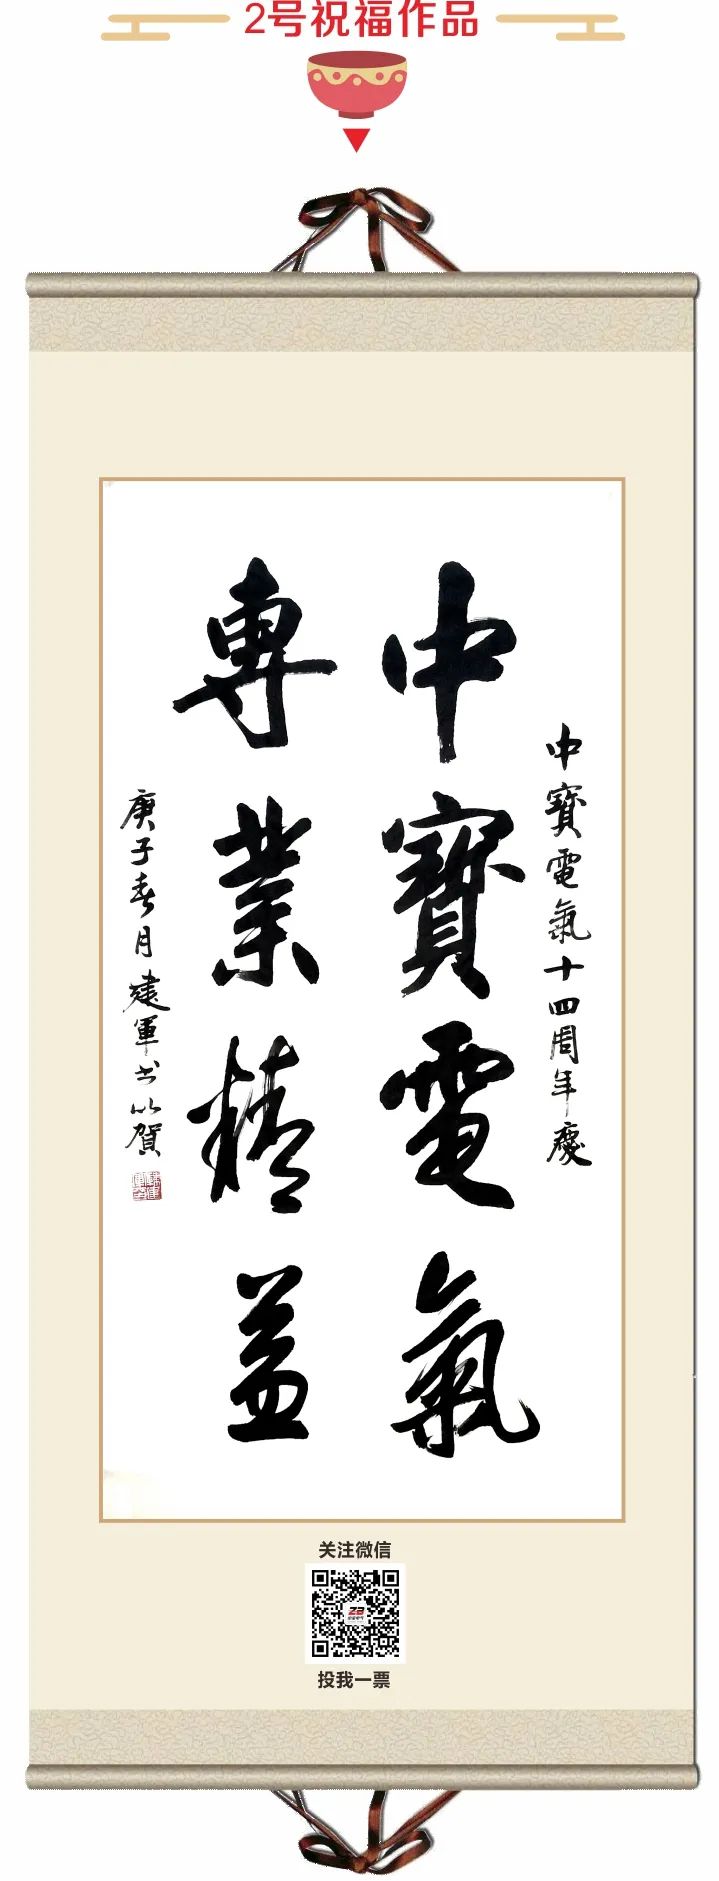 2号祝福作品
中寶電氣十四周年慶
中寶電氣
專業精益
庚子春月建軍书以賀
关注微信
投我一票